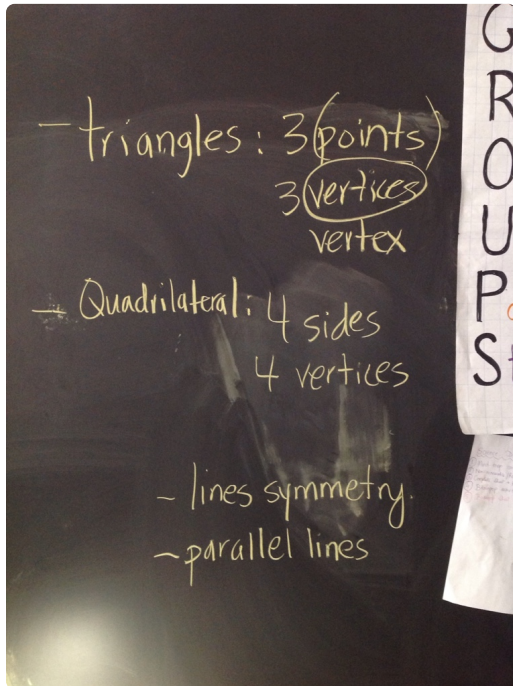 - triangles: 3 (points)
3 vertices
vertex
- Quadrilateral: 4 sides
4 vertices
- lines symmetry.
- parallel lines
G
R
O
U
P
S